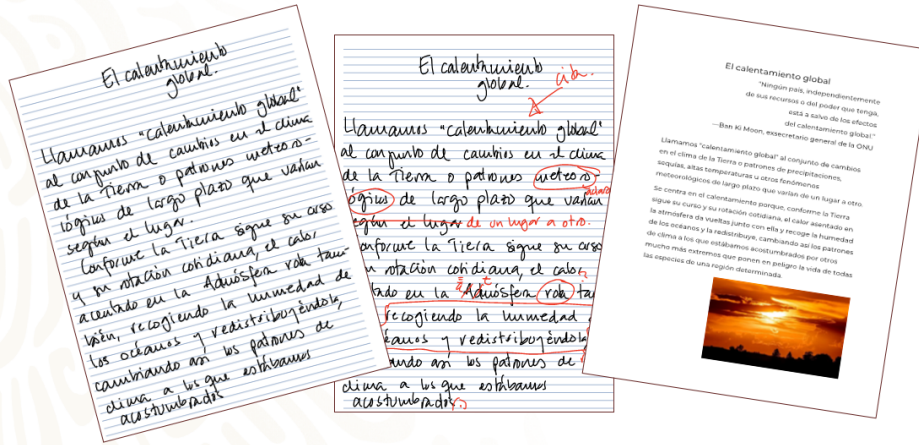 El calentamiento
global.
Llamamos "calentamiento global"
al conjunto de cambios en el clima
de la Tierra o patrones meteoro-
lógicos de largo plazo que varían
según el lugar.
Conforme la Tierra sigue su curso
y su rotación cotidiana, el calor
acentado en la Admósfera rola tam-
bién, recogiendo la humedad de
los océanos y redistribuyéndola,
cambiando así los patrones de
clima a los que estábamos
acostumbrados
El calentamiento
global.
cita.
Llamamos "calentamiento global"
al conjunto de cambios en el clima
de la Tierra o patrones meteoro
lógicos de largo plazo que varían
según el lugar de un lugar a otro.
onforme la Tierra sigue su curso
su rotación cotidiana, el calor
tado en la Admósfera rola ta
recogiendo la humedad
céanos y redistribuyéndola,
ando así los patrones de
clima a los que estábamos
acostumbrados
El calentamiento global
"Ningún país, independientemente
de sus recursos o del poder que tenga,
está a salvo de los efectos
del calentamiento global."
—Ban Ki Moon, exsecretario general de la ONU
Llamamos "calentamiento global" al conjunto de cambios
en el clima de la Tierra o patrones de precipitaciones,
sequías, altas temperaturas u otros fenómenos
meteorológicos de largo plazo que varían de un lugar a otro.
Se centra en el calentamiento porque, conforme la Tierra
sigue su curso y su rotación cotidiana, el calor asentado en
la atmósfera da vueltas junto con ella y recoge la humedad
de los océanos y la redistribuye, cambiando así los patrones
de clima a los que estábamos acostumbrados por otros
mucho más extremos que ponen en peligro la vida de todas
las especies de una región determinada.